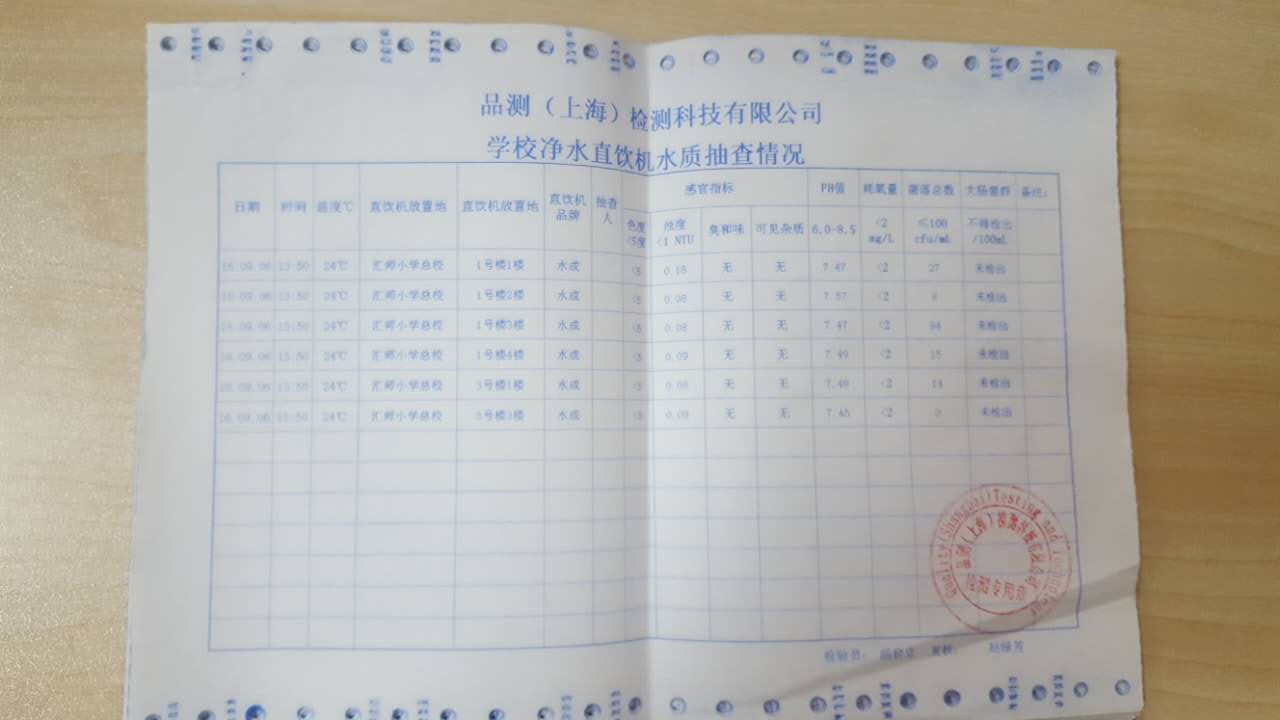 品测（上海）检测科技有限公司
学校净水直饮机水质抽查情况
日期 时间 温度℃ 直饮机放置地 直饮机放置地 直饮机品牌 抽查人 感官指标 PH值 耗氧量 菌落总数 大肠菌群 备注:
色度<5度 浊度<1 NTU 臭和味 可见杂质 6.0-8.5 <2 mg/L ≤100 cfu/mL 不得检出/100mL
16.09.06 13:50 24℃ 汇师小学总校 1号楼1楼 水成 <5 0.18 无 无 7.47 <2 27 未检出
16.09.06 13:50 24℃ 汇师小学总校 1号楼2楼 水成 <5 0.08 无 无 7.57 <2 未检出
16.09.06 13:50 24℃ 汇师小学总校 1号楼3楼 水成 <5 0.08 无 无 7.47 <2 94 未检出
16.09.06 13:50 24℃ 汇师小学总校 1号楼4楼 水成 <5 0.09 无 无 7.49 <2 15 未检出
16.09.06 13:50 24℃ 汇师小学总校 3号楼1楼 水成 <5 0.08 无 无 7.49 <2 14 未检出
16.09.06 13:50 24℃ 汇师小学总校 3号楼3楼 水成 <5 0.09 无 无 7.45 <2 0 未检出
Quality(Shanghai)Testing and
品测（上海）检测科技有限公司
检测专用章
检验员: 复核: 赵绿芳